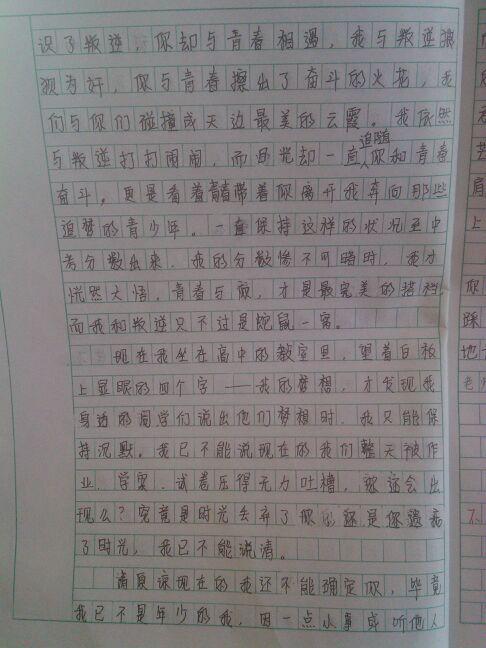 识了叛逆，你却与青春相遇，我与叛逆狼
狈为奸，你与青春擦出了奋斗的火花，我
们与你们碰撞成天边最美的云霞。我依然
与叛逆打打闹闹，而目光却一直追随你和青春
奋斗。更是看着青春带着你离开我奔向那些
追梦的青少年。一直保持这样的状况至中
考分数出来，我的分数惨不可睹时，我才
恍然大悟，青春与你，才是最完美的搭档
而我和叛逆只不过是蛇鼠一窝。
现在我坐在高中的教室里，望着白板
上显眼的四个字——我的梦想，才发现我
身边的同学们说出他们梦想时，我只能保
持沉默。我已不能说现在的我们整天被作
业、学案、试卷压得无力吐槽，你还会出
现么？究竟是时光丢弃了你的还是你遗弃
了时光，我已不能说清。
请原谅现在的我还不能确定你，毕竟
我已不是年少的我，因一点小事或听他人